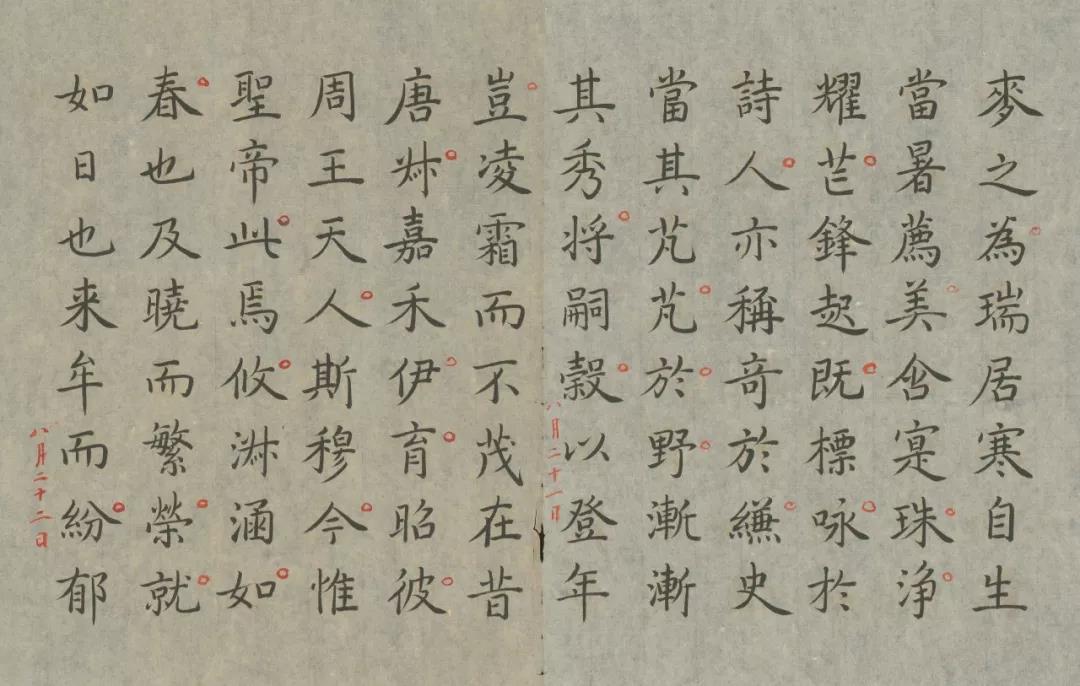 麥之為瑞居寒自生
當暑薦美含寔珠浄
耀芒鋒起既標咏於
詩人亦稱竒於縑史
當其芃芃於野漸漸
其秀将嗣穀以登年
八月二十一日
豈凌霜而不茂在昔
唐叔嘉禾伊育昭彼
周王天人斯穆今惟
聖帝此焉攸淑涵如
春也及曉而繁榮就
如日也来牟而紛郁
八月二十二日